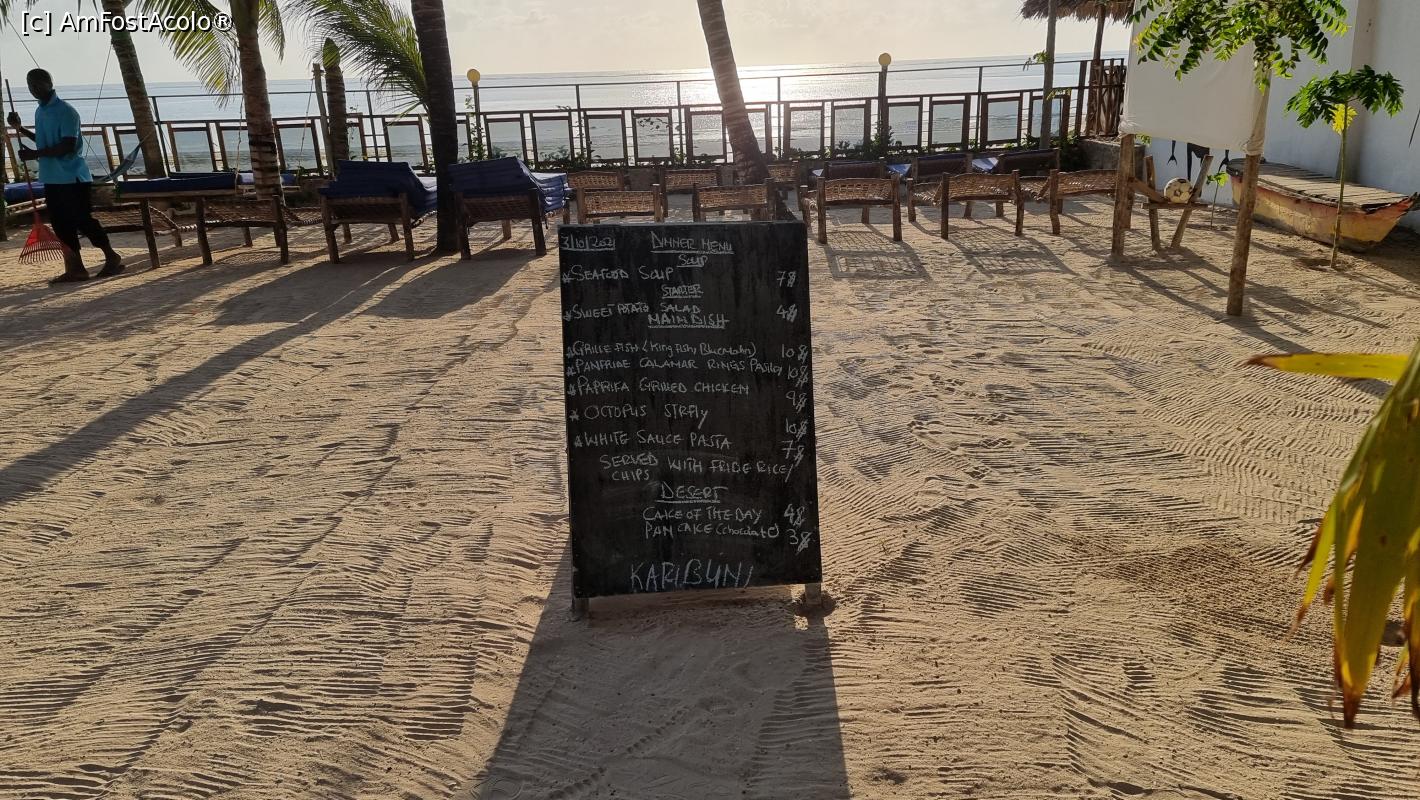 [c] AmFostAcolo®
3/10/2021 DINNER MENU
SOUP
*SEAFOOD SOUP 7$
STARTER
*SWEET POTATO SALAD 4$
MAIN DISH
*GRILLE FISH (King fish, BlueMarlin) 10$
*PANFRIDE CALAMAR RINGS 10$
*PAPRIKA GRILLED CHICKEN 9$
* OCTOPUS STRFIY 10$
*WHITE SAUCE PASTA 7$
SERVED WITH FRIDE RICE/
CHIPS
DESERT
CAKE OF THE DAY 4$
PAN CAKE (chocolate) 3$
KARIBUNI